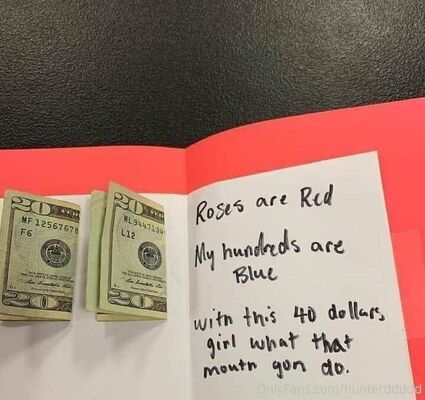 20
MF12567678
F6
20
20
L12
20
Roses are Red
My hundreds are
Blue
with this 40 dollars,
girl what that
mouth gon do.
OnlyFans.com/hunterdddd